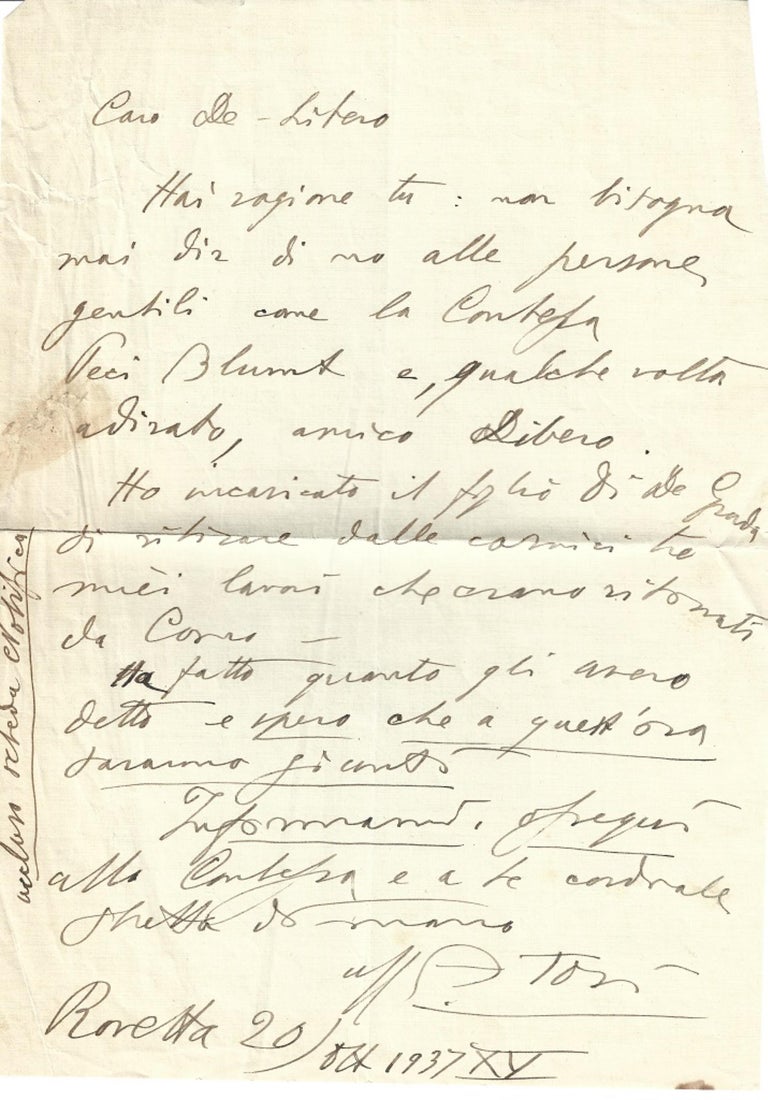 Caro De-Libero
Hai ragione tu: non bisogna
mai dir di no alle persone
gentili come la Contessa
Peci Blumt e, qualche volta
adirato, amico Libero.
Ho incaricato il figlio di De Grada
di ritirare dalle cornici tre
miei lavori che erano ritornati
da Como -
Ha fatto quanto gli avevo
detto e spero che a quest'ora
saranno giunti
Informami. Ossequi
alla Contessa e a te cordiale
stretta di mano
aff Tosi
Rovetta 20/Ott 1937 XV
accluso scheda Notifica